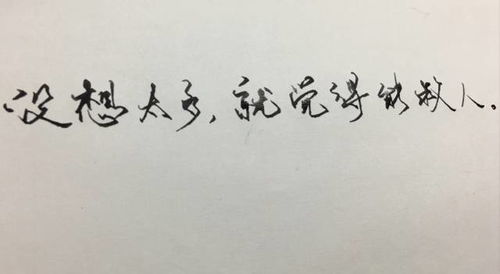 没想太多，就觉得能救人。